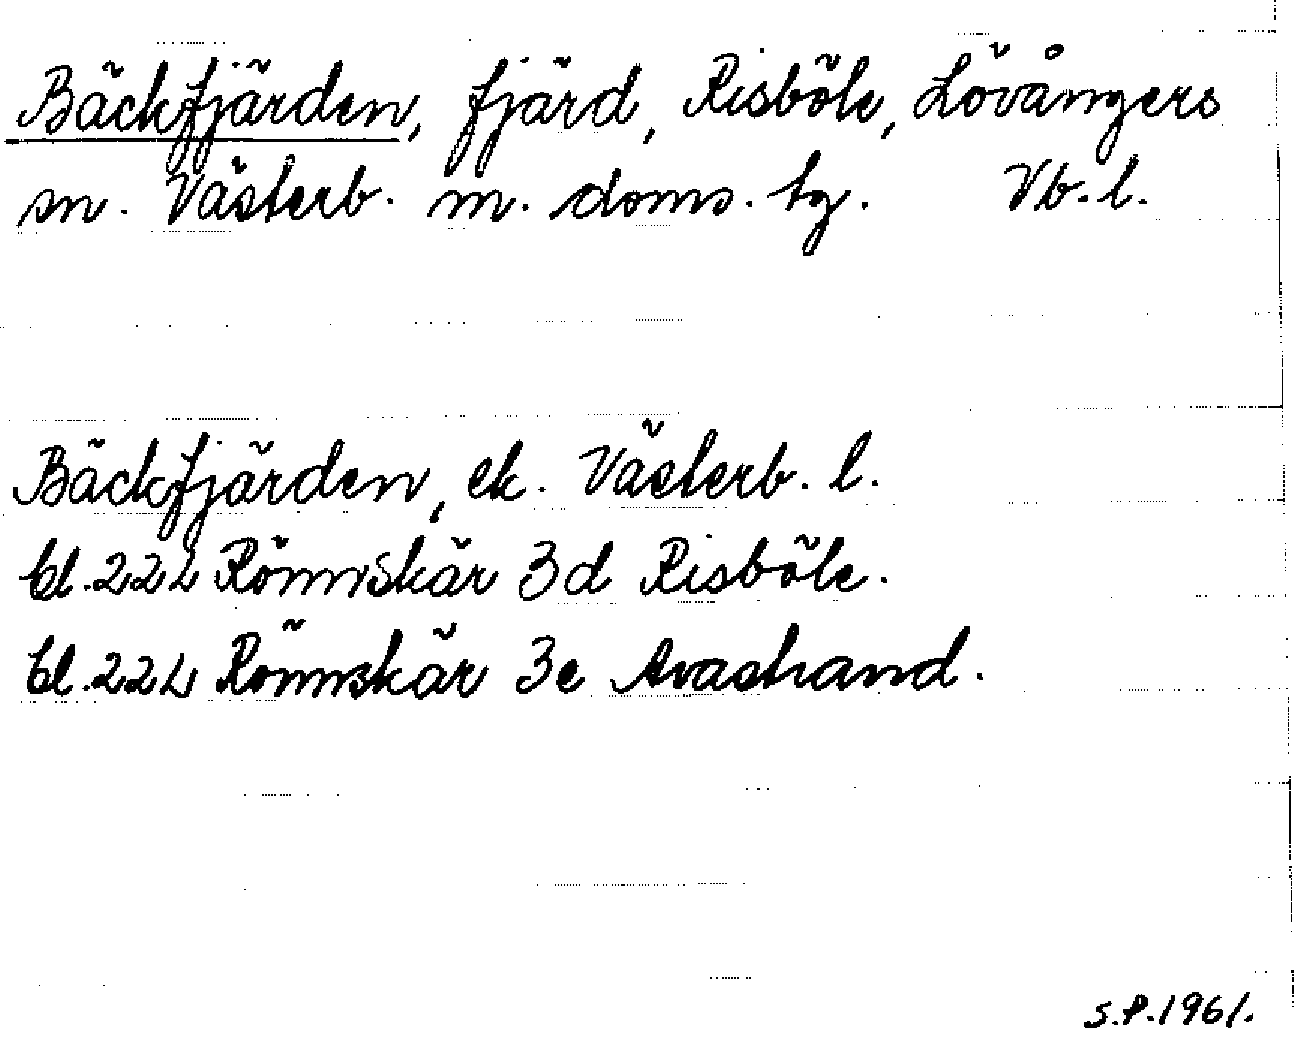 Bäckfjärden, fjärd, Risböle, Lövångers
sn. Västerb. m. doms. tg. Vb. l.
Bäckfjärden, ek. Västerb. l.
bl. 22L Rönnskär 3d Risböle.
bl. 22L Rönnskär 3e Avastrand.
S.P. 1961.